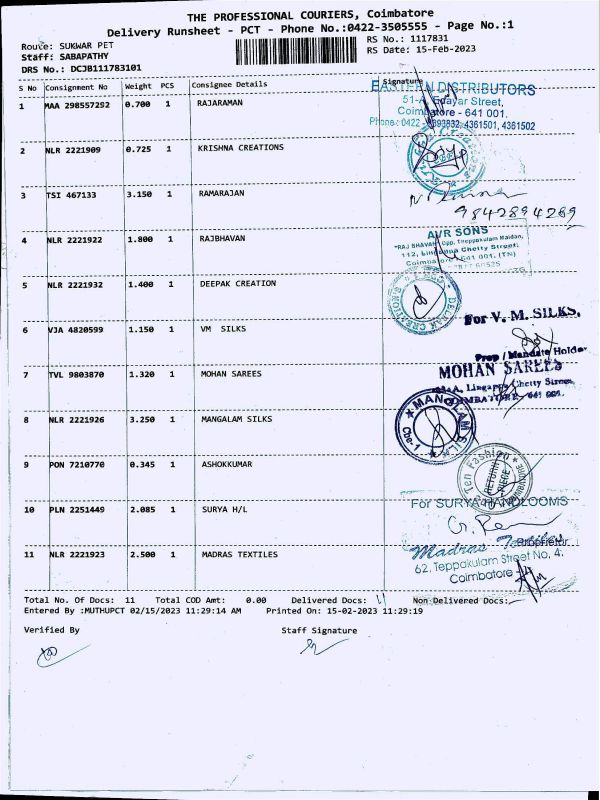 THE PROFESSIONAL COURIERS, Coimbatore
Delivery Runsheet - PCT - Phone No.:0422-3505555 - Page No.:1
Route: SUKWAR PET
RS No.: 1117831
Staff: SABAPATHY
RS Date: 15-Feb-2023
DRS No.: DCJB111783101
S No Consignment No Weight PCS Consignee Details Signature
1 MAA 298557292 0.700 1 RAJARAMAN
EASTERN DISTRIBUTORS
51-A, Edayar Street,
Coimbatore - 641 001.
Phone : 0422 - 4393832, 4361501, 4361502
2 NLR 2221909 0.725 1 KRISHNA CREATIONS
3 TSI 467133 3.150 1 RAMARAJAN
9842894289
4 NLR 2221922 1.800 1 RAJBHAVAN
AVR SONS
"RAJ BHAVAN" Opp. Theppakulam Maidan,
112, Lingappa Chetty Street,
Coimbatore - 641 001. (TN)
5 NLR 2221932 1.400 1 DEEPAK CREATION
DEEPAK CREATIONS
6 VJA 4820599 1.150 1 VM SILKS
For V. M. SILKS,
Prop / Mandate Holder
7 TVL 9803870 1.320 1 MOHAN SAREES
MOHAN SAREES
Lingappa Chetty Street,
COIMBATORE - 641 001.
8 NLR 2221926 3.250 1 MANGALAM SILKS
MANGALAM SILK
Cbe-1
9 PON 7210770 0.345 1 ASHOKKUMAR
Ten Fashion
COIMBATORE
10 PLN 2251449 2.085 1 SURYA H/L
For SURYA HANDLOOMS
Proprietor
11 NLR 2221923 2.500 1 MADRAS TEXTILES
Madras Textiles
62, Teppakulam Street No, 4,
Coimbatore
Total No. Of Docs: 11 Total COD Amt: 0.00 Delivered Docs: 11 Non-Delivered Docs:
Entered By :MUTHUPCT 02/15/2023 11:29:14 AM Printed On: 15-02-2023 11:29:19
Verified By Staff Signature